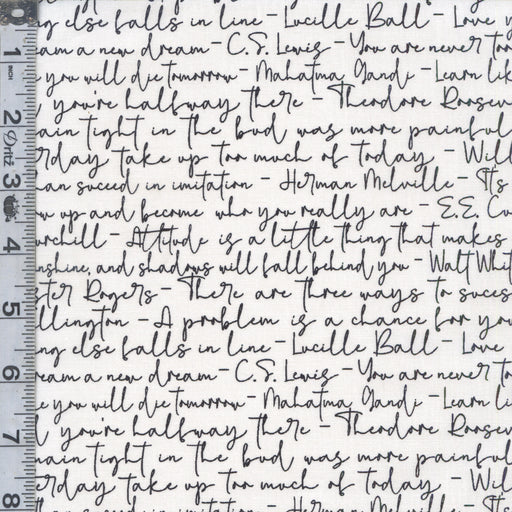 g else falls in line - Lucille Ball - Love y
am a new dream - C.S. Lewis - You are never too
you will die tomorrow - Mahatma Gandi - Learn lik
you're halfway there - Theodore Roosev
ain tight in the bud was more painful
rday take up too much of today - Will
an suceed in imitation - Herman Melville - Its
w up and become who you really are - E.E. Cu
urchill - Attitude is a little thing that makes
nshine, and shadows will fall behind you - Walt Whit
ster Rogers - There are three ways to suces
llington - A problem is a chance for you
ng else falls in line - Lucille Ball - Love
ream a new dream - C.S. Lewis - You are never to
e you will die tomorrow - Mahatma Gandi - Learn li
you're halfway there - Theodore Roosev
main tight in the bud was more painful
erday take up too much of today - Wil
suceed in imitation - Herman Melville - It
0
1
INCH
2
Dritz
3
4
5
6
7
8